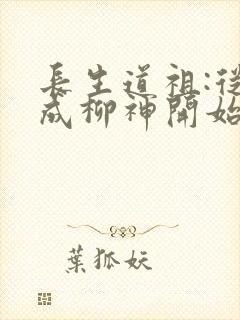 長生道祖:從
成柳神開始
葉狐妖